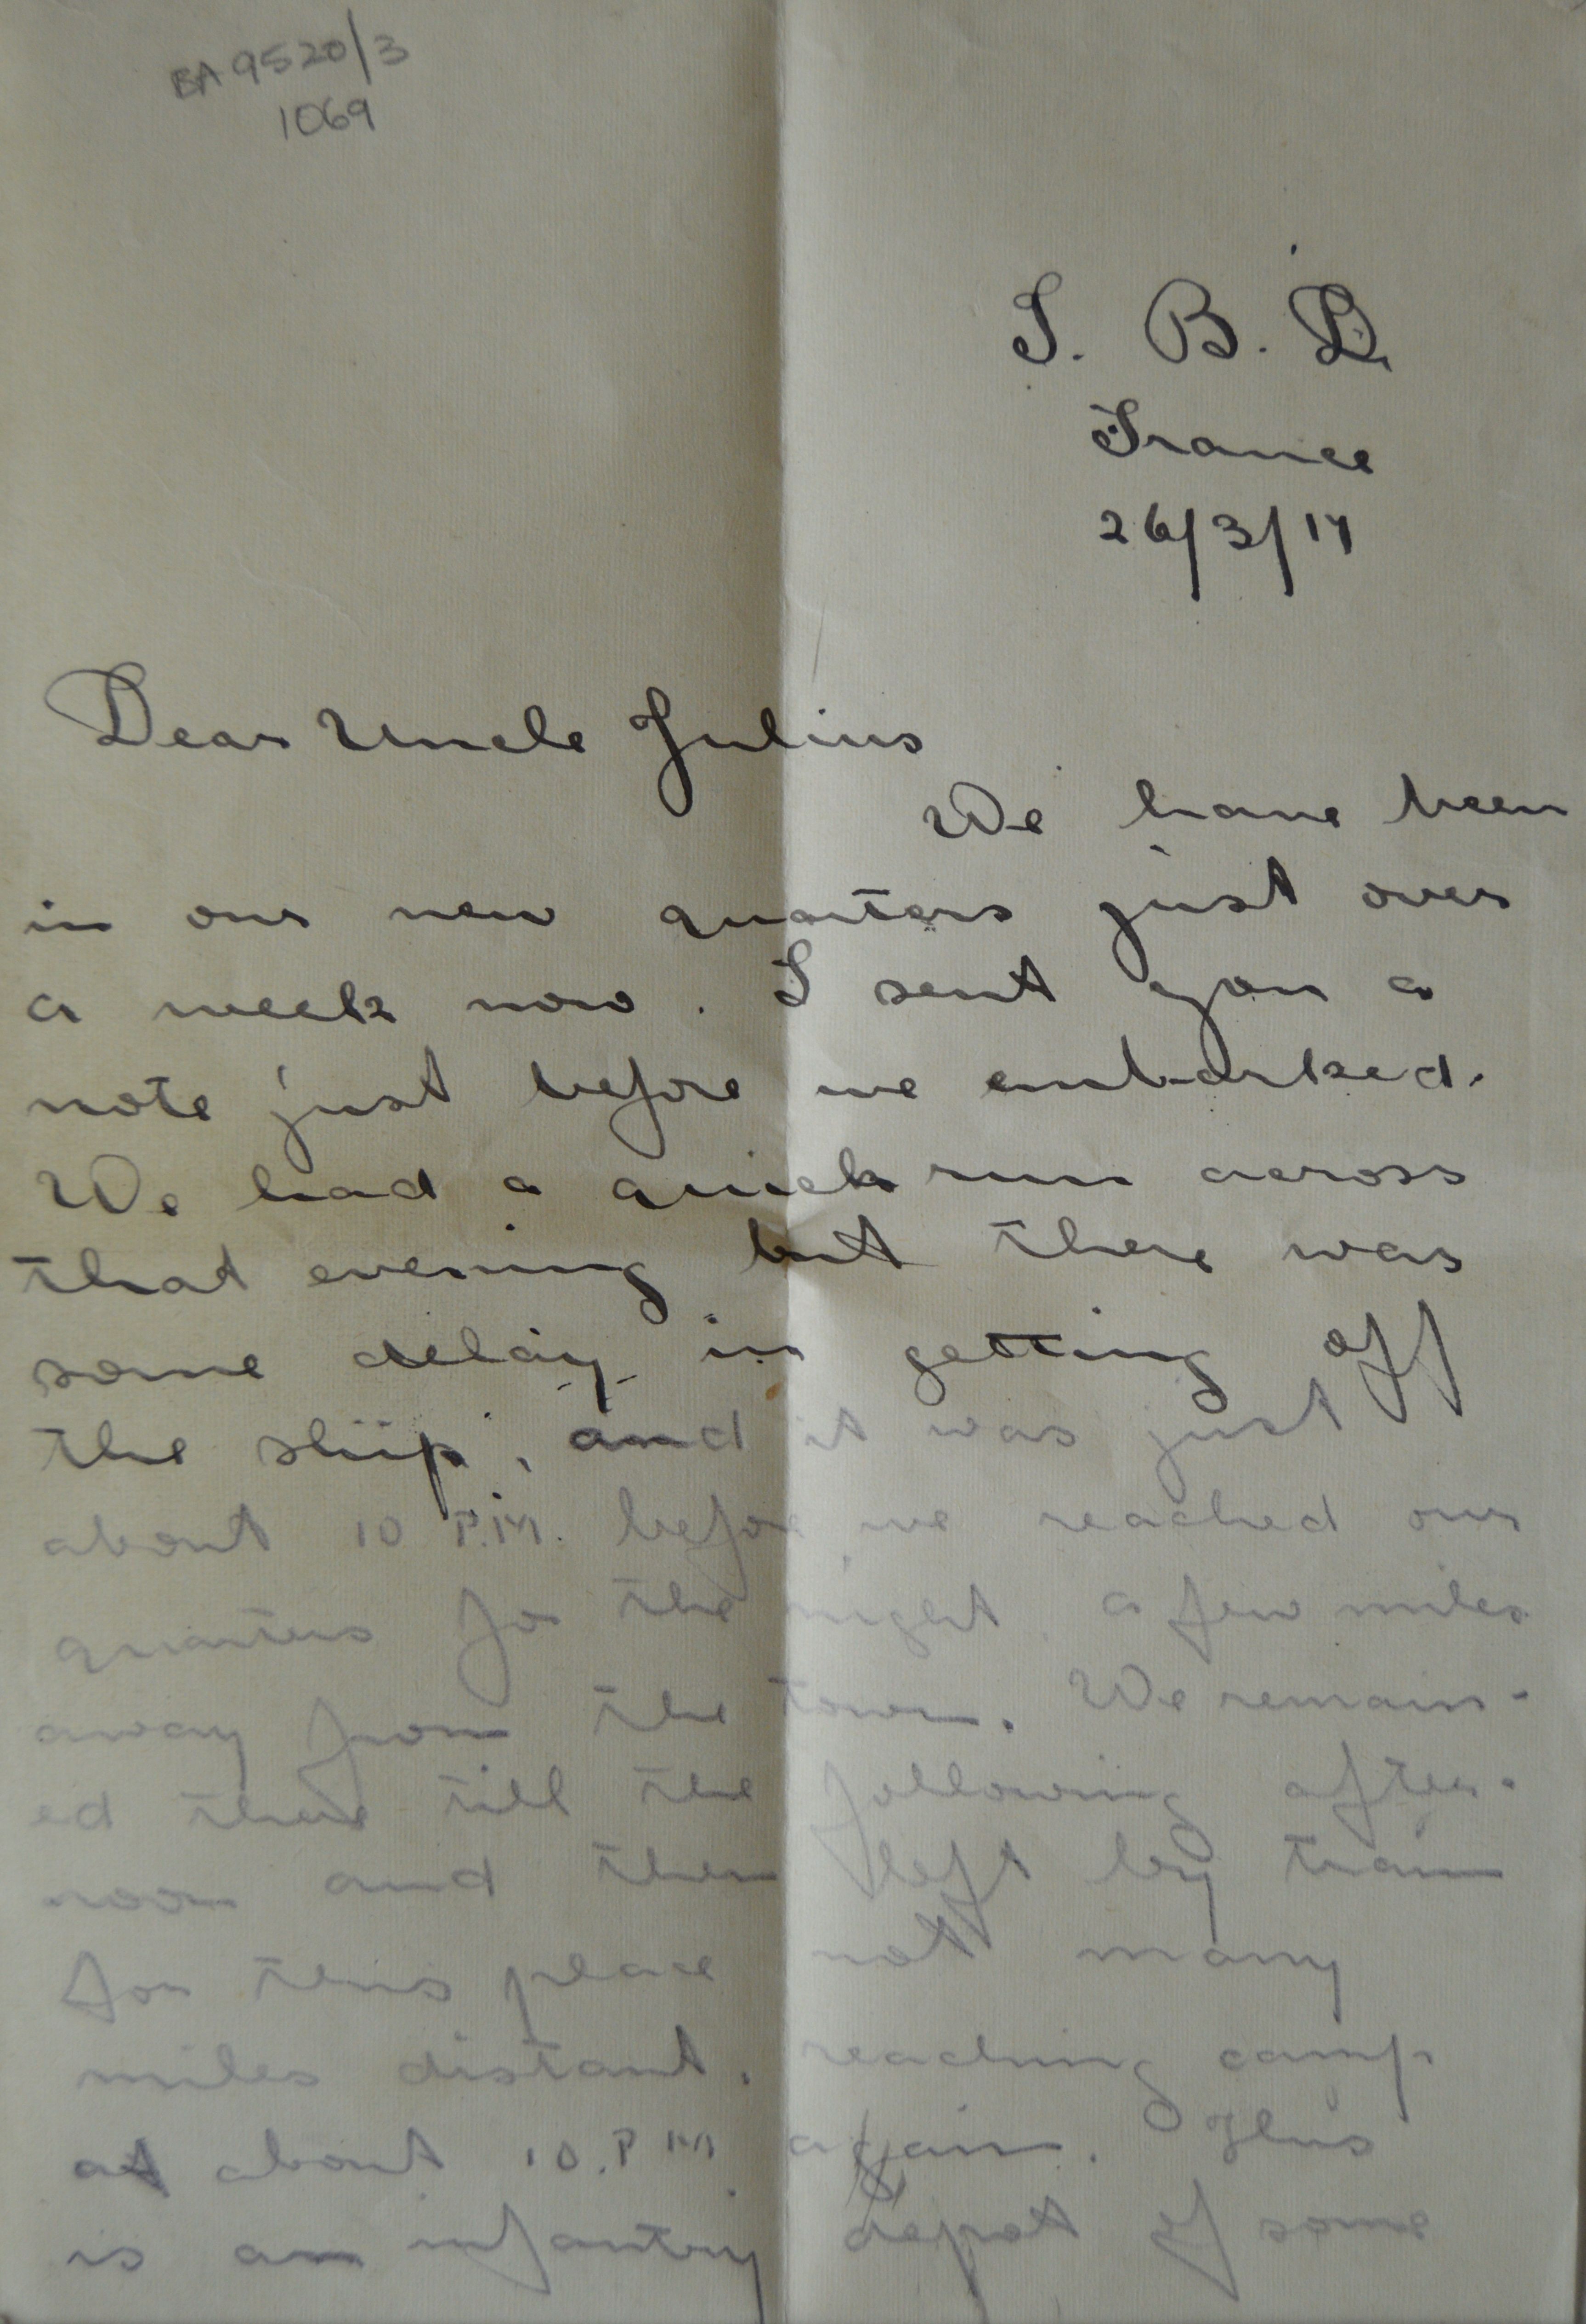 BA 9520/3
1069
I. B. D.
France
26/3/17
Dear Uncle Julius
We have been
in our new quarters just over
a week now. I sent you a
note just before we embarked.
We had a quick run across
that evening but there was
some delay in getting off
the ship, and it was just
about 10 P.M. before we reached our
quarters for the night, a few miles
away from the town. We remain-
ed there till the following after-
noon and then left by train
for this place not many
miles distant, reaching camp
at about 10.P.M again. This
is an infantry depot of some